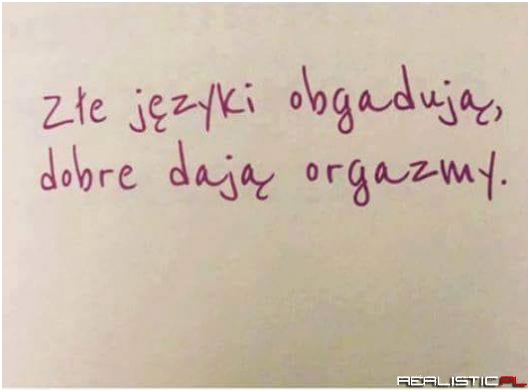 złe języki obgadują,
dobre dają orgazmy.
REALISTIC.PL